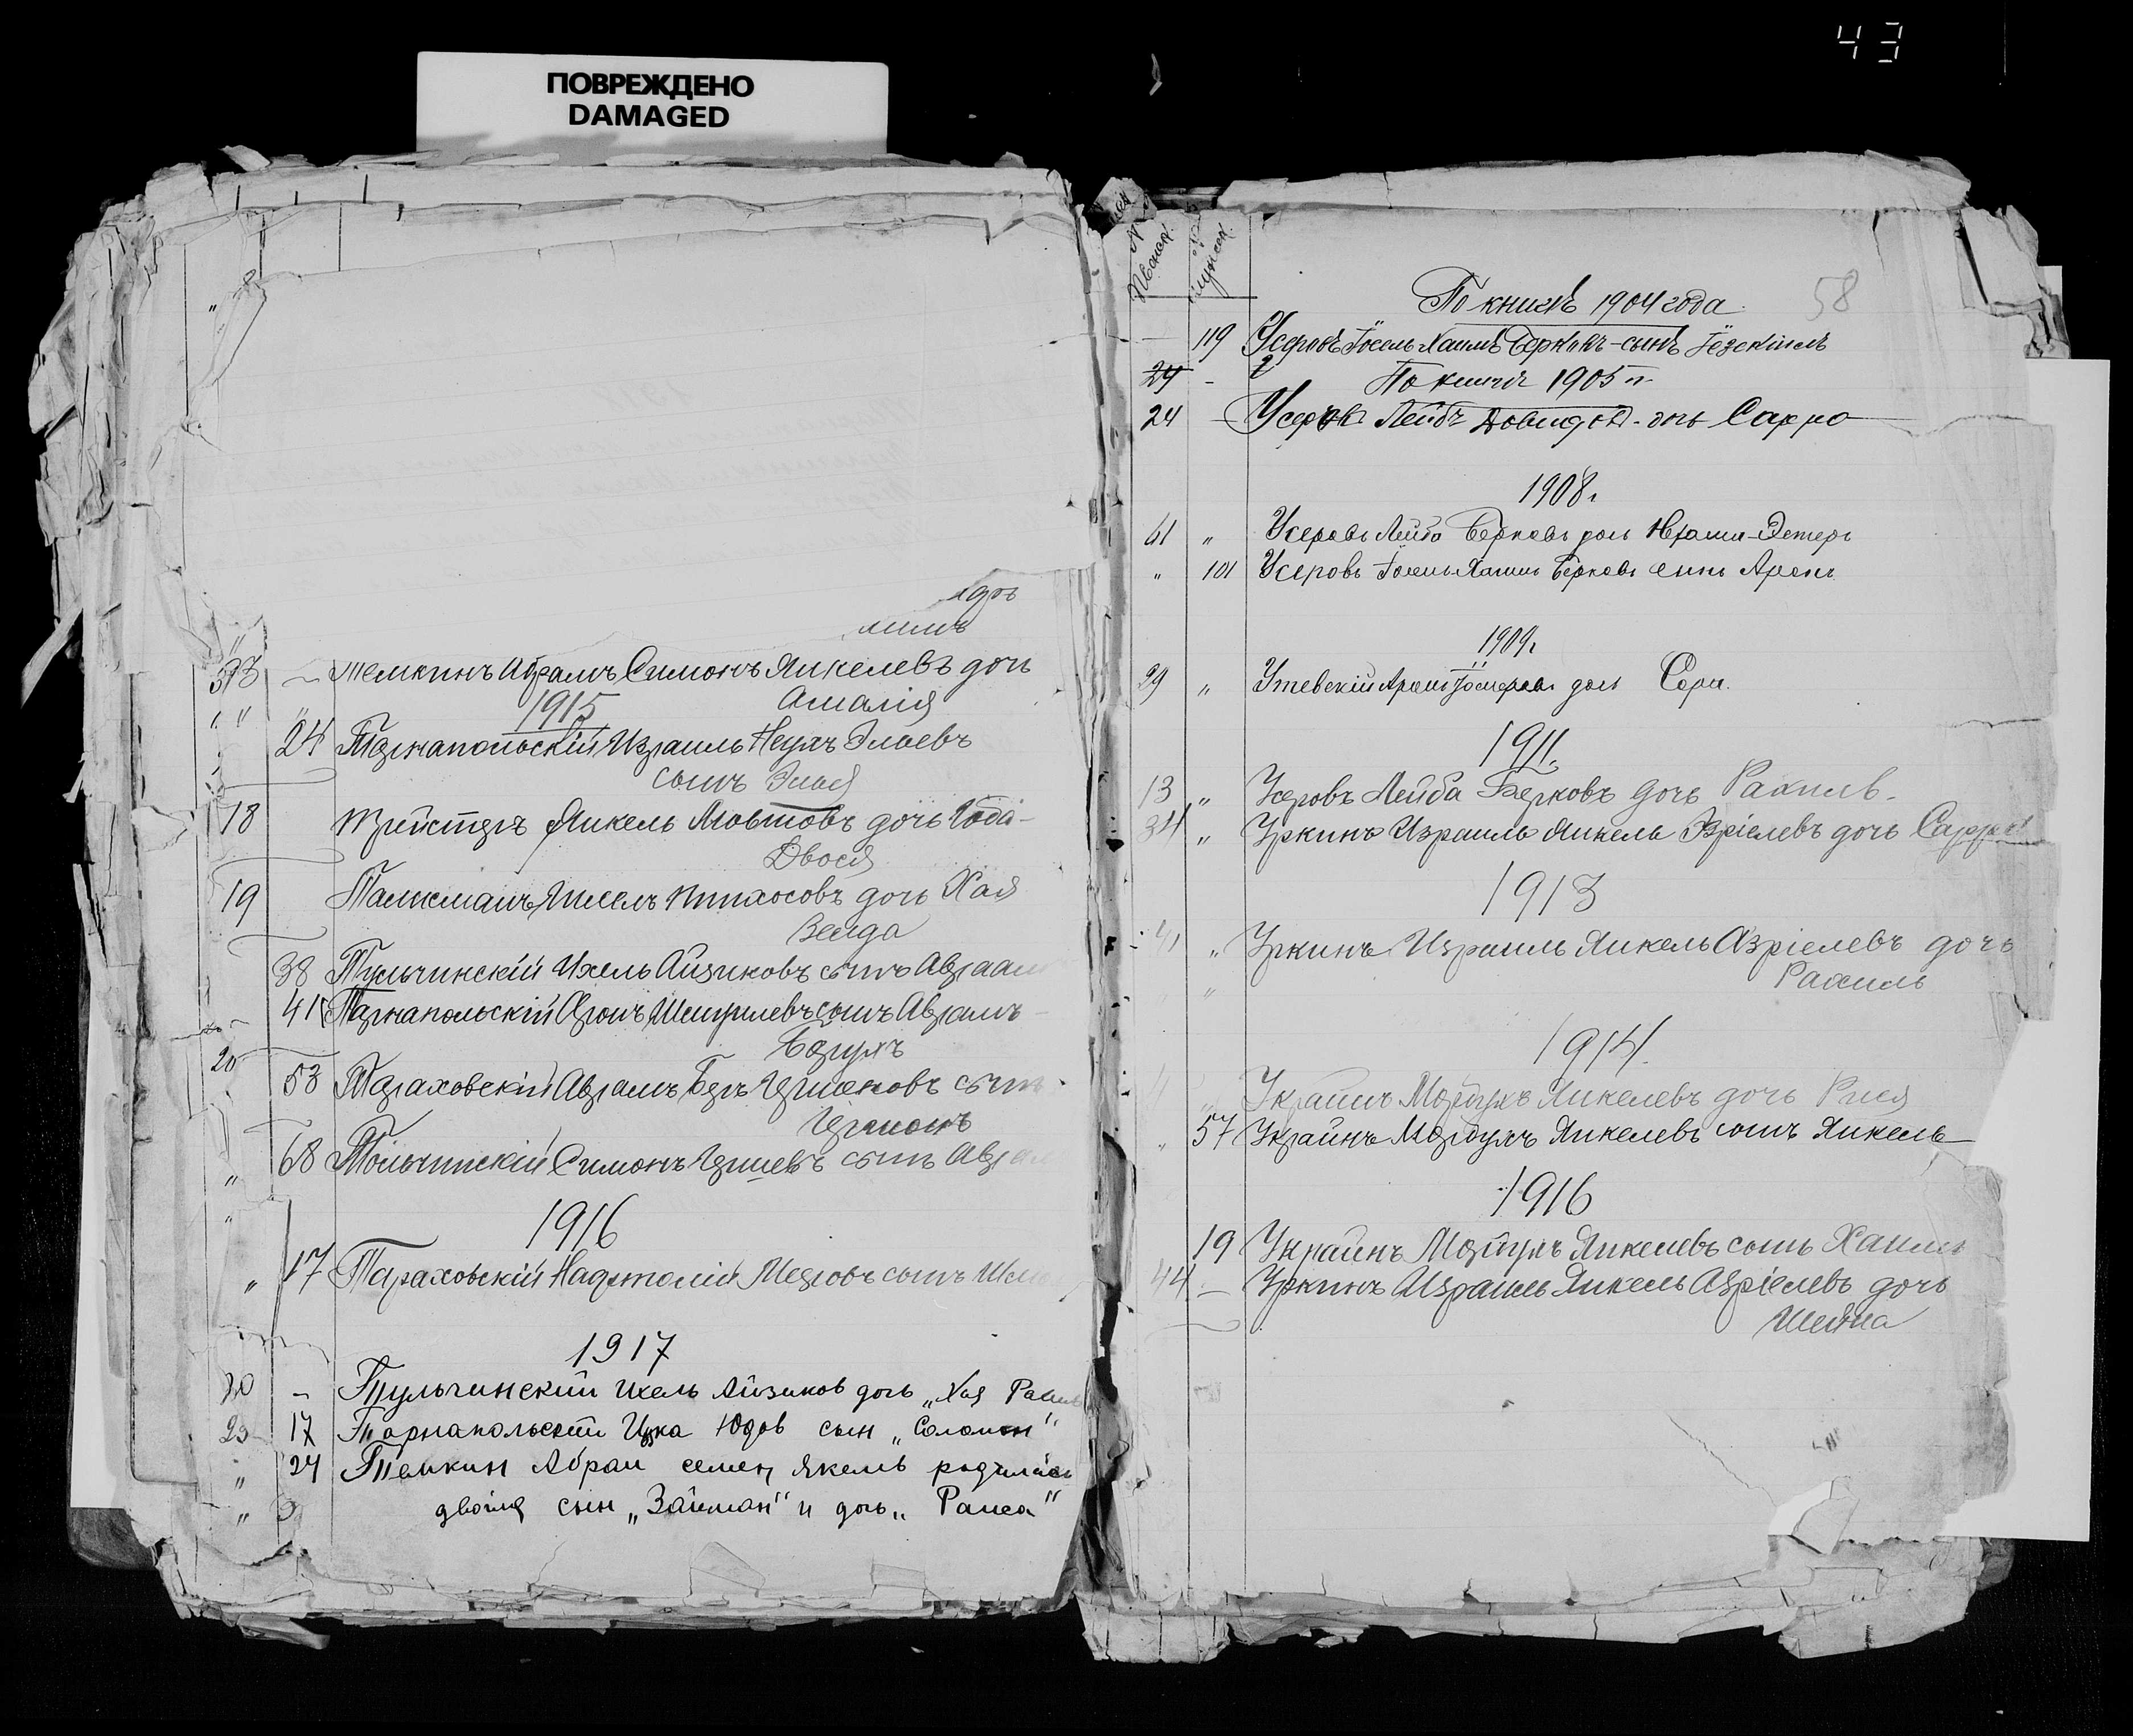 43
ПОВРЕЖДЕНО
DAMAGED
дочь
37 — Темкинъ Абрамъ Симонъ Янкелевъ дочь
Амалія
1915
24 Тарнапольскій Израиль Неухъ Эльевъ
сынъ Элья
18 Янкель дочь Года-
Двося
19 дочь Хая
Зельда
38 Тульчинскій Ихель Айзиковъ сынъ Авраам
41 Тарнапольскій Аронъ сынъ Аврамъ
Борухъ
53 Тараховскій Аврамъ Беръ сынъ
68 Тольчинскій Симонъ сынъ
1916
17 Тараховскій Нафтолій Мееровъ сынъ
1917
20 - Тульчинский Ихель Айзиков дочь „Хая
17 Тарнапольский Юдов сын „Соломон"
24 Темкин Абрам семен, якель родилась
двойня сын „Займан" и дочь „Раиса"
58
По книгѣ 1904 года
— 119 Усеровъ Іосель Хаимъ Берковъ-сынъ Іезекіиль
24 - По книгѣ 1905 г.
24 — Усеровъ Лейбъ Довидов. дочь Сарра
1908 г.
61 „ Усеровъ Лейба Берковъ дочь Эстеръ
„ 101 Усеровъ Іосель-Хаимъ Берковъ сынъ Аронъ
1909 г.
29 „ Утевскій Аронъ дочь Сара.
1911.
13 „ Усеровъ Лейба Берковъ дочь Рахиль.
34 „ Уркинъ Израиль Янкель Азріелевъ дочь Сарра
1913
41 „ Уркинъ Израиль Янкель Азріелевъ дочь
Рахиль
1914.
Украинъ Мордухъ Янкелевъ дочь Рися
„ 57 Украинъ Мордухъ Янкелевъ сынъ Янкель
1916
19 Украинъ Мордухъ Янкелевъ сынъ Хаимъ
44 — Уркинъ Израиль Янкель Азріелевъ дочь
Шейна